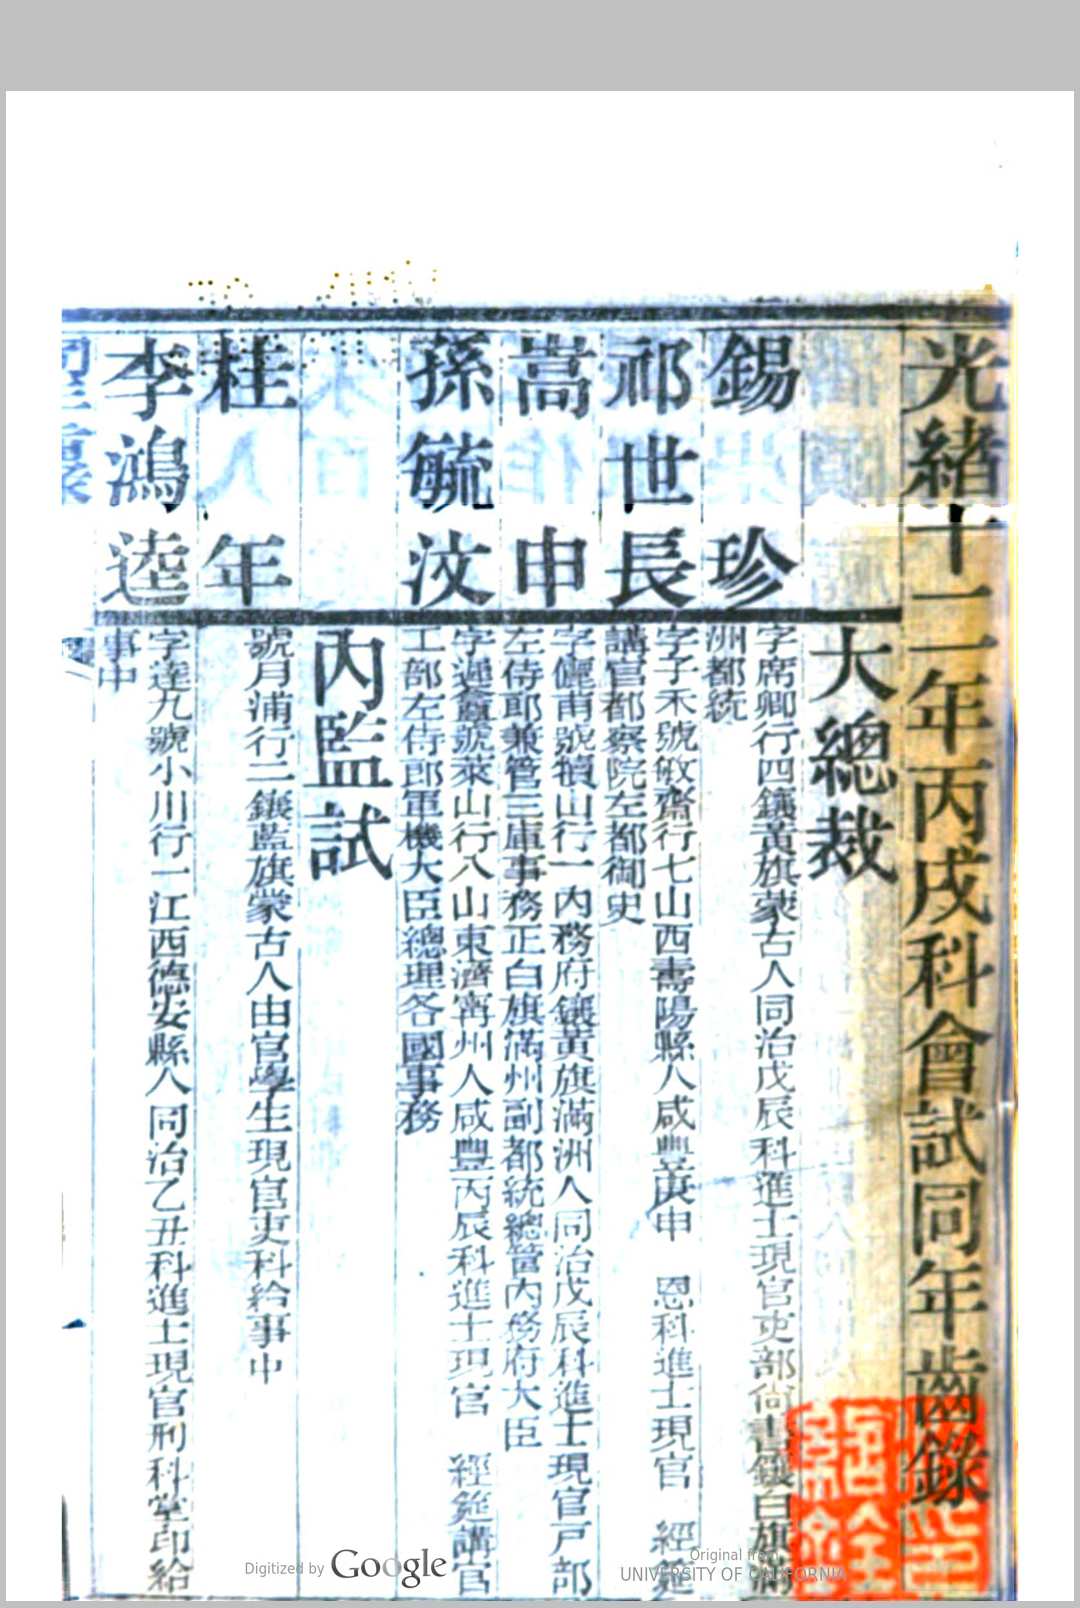 光緒十二年丙戌科會試同年齒錄
大總裁
錫珍
字席卿行四鑲黃旗蒙古人同治戊辰科進士現官吏部尙書鑲白旗滿
洲都統
祁世長
字子禾號敏齋行七山西壽陽縣人咸豐庚申 恩科進士現官 經筵
講官都察院左都御史
嵩申
字儷甫號犢山行一內務府鑲黃旗滿洲人同治戊辰科進士現官戶部
左侍郎兼管三庫事務正白旗滿州副都統總管內務府大臣
孫毓汶
字遲盦號萊山行八山東濟甯州人咸豐丙辰科進士現官 經筵講官
工部左侍郎軍機大臣總理各國事務
內監試
桂年
號月浦行二鑲藍旗蒙古人由官學生現官吏科給事中
李鴻逵
字達九號小川行一江西德安縣人同治乙丑科進士現官刑科掌印給
事中
Digitized by Google
Original from
UNIVERSITY OF CALIFORNIA